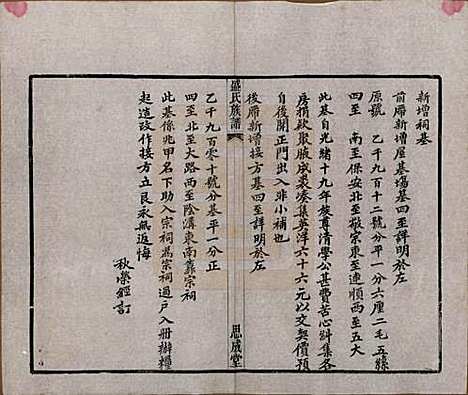 新增祠基
前厢新增屋基場基四至詳明於左
原號 乙千九百十二號分平一分六厘二毛五絲
四至 南至保安北至敬宗東至順西至五大
此基自光緒十九年族尊清學公甚費苦心斜集各
房捐歛聚腋成裘湊集英洋六十六元以交契價預
自後開正門出入非小補也
後厢新增接方基四至詳明於左
乙千九百零十號分基平一分正
四至北至大路西至陰溝東南靠宗祠
此基係兆甲名下助入宗祠為宗祠過戶入冊辦糧
起造改作接方立民承無返悔
秋榮經訂
盛氏族譜
思成堂